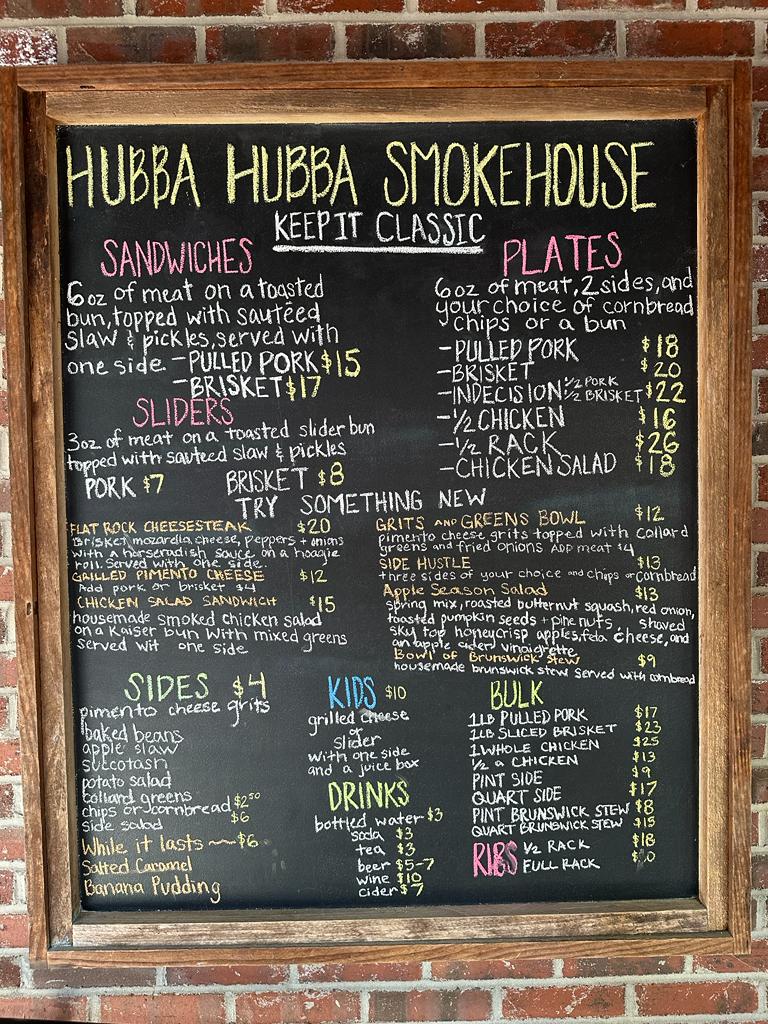 HUBBA HUBBA SMOKEHOUSE
KEEP IT CLASSIC
SANDWICHES
6 oz of meat on a toasted
bun, topped with sautéed
slaw & pickles, served with
one side. - PULLED PORK $15
- BRISKET $17
SLIDERS
3oz of meat on a toasted slider bun
topped with sauteed slaw & pickles
PORK $7 BRISKET $8
PLATES
6 oz of meat, 2 sides, and
your choice of cornbread
chips or a bun
- PULLED PORK $18
- BRISKET $20
- INDECISION 1/2 PORK 1/2 BRISKET $22
- 1/2 CHICKEN $16
- 1/2 RACK $26
- CHICKEN SALAD $18
TRY SOMETHING NEW
FLAT ROCK CHEESESTEAK $20
Brisket, mozarella cheese, peppers + onions
with a horseradish sauce on a hoagie
roll. Served with one side.
GRILLED PIMENTO CHEESE $12
Add pork or brisket $4
CHICKEN SALAD SANDWICH $15
housemade smoked chicken salad
on a Kaiser bun with mixed greens
served wit one side
GRITS AND GREENS BOWL $12
pimento cheese grits topped with collard
greens and fried onions ADD meat $4
SIDE HUSTLE $13
three sides of your choice and chips or cornbread
Apple Season Salad $13
spring mix, roasted butternut squash, red onion,
toasted pumpkin seeds + pine nuts, shaved
sky top honeycrisp apples, feta cheese, and
an apple cider vinaigrette
Bowl of Brunswick Stew $9
housemade brunswick stew served with cornbread
SIDES $4
pimento cheese grits
baked beans
apple slaw
succotash
potato salad
collard greens
chips or cornbread $2.50
side salad $6
While it lasts ~ $6
Salted Caramel
Banana Pudding
KIDS $10
grilled cheese
or
slider
with one side
and a juice box
DRINKS
bottled water $3
soda $3
tea $3
beer $5-7
wine $10
cider $7
BULK
1LB PULLED PORK $17
1LB SLICED BRISKET $23
1 WHOLE CHICKEN $25
1/2 a CHICKEN $13
PINT SIDE $9
QUART SIDE $17
PINT BRUNSWICK STEW $8
QUART BRUNSWICK STEW $15
RIBS 1/2 RACK $18
FULL RACK